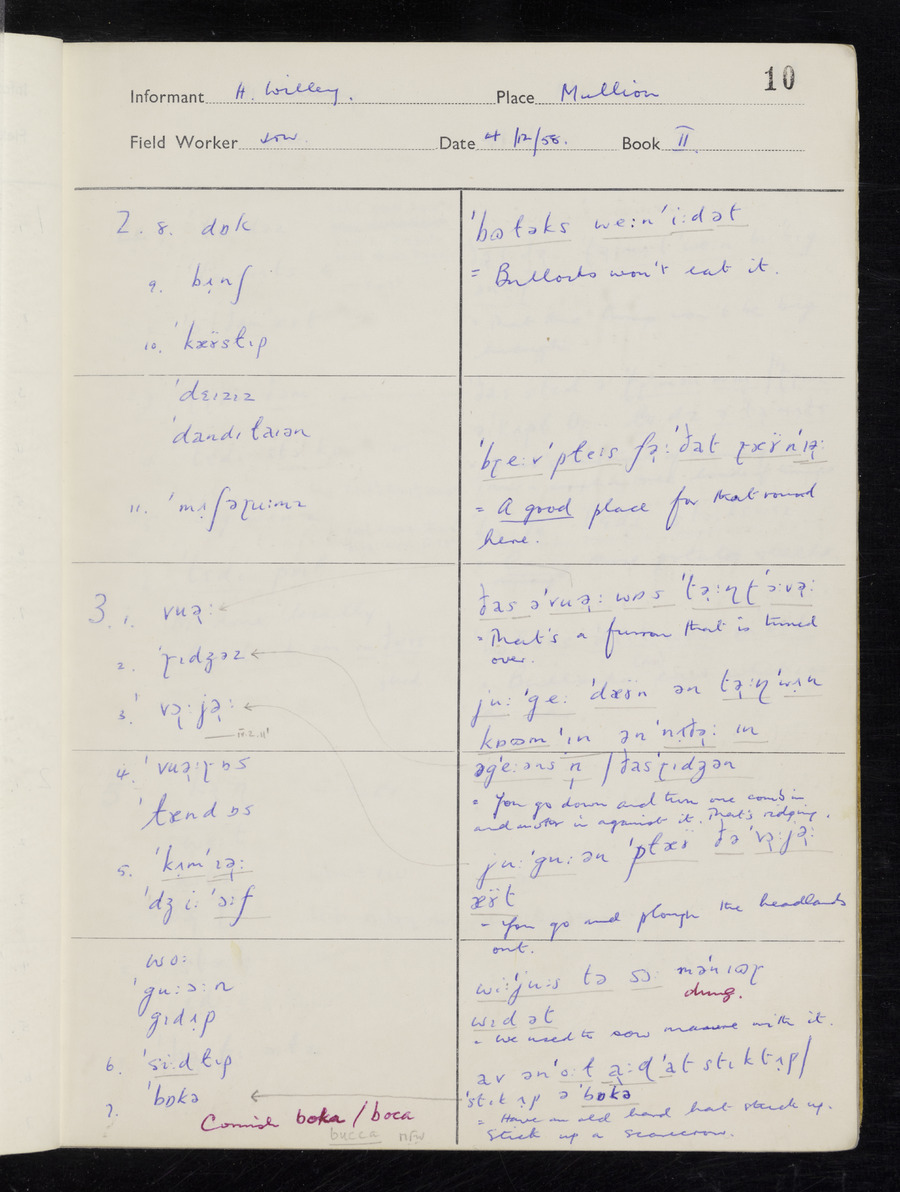 10
Informant H. Willey. Place Mullion
Field Worker Date 4/12/58. Book II
2. 8. dɒk
9. bɪ̣nʃ
10. ˈkæÿstɪp
ˈdɛɪzɪz
ˈdandɪlaɪən
11. ˈmʌ̣ʃəɽuːmz
3. 1. vuə̣ː
2. ˈɽɪdʒəz
3. ˈvə̣ːjə̣ː
IV.2.11
4. ˈvuə̣ːɽɒs
ˈlændɒs
5. ˈkʌ̣mˈɪə̣ː
ˈdʒiːˈɔːf
woː
ˈguːɔːn
gɪdʌ̣p
6. ˈsiːdlɪp
7. ˈbɒkə
Cornish boka / boca
bucca MFW
ˈbɷləks weːnˈiːdət
= Bullocks won't eat it.
ˈbɽeːvˈpleɪs fə̣ːˈðat ɽæÿnˈɪə̣ː
= A good place for that round
here.
ðas əˈvuə̣ː wɒs ˈtə̣ːɳtˈɔːvə̣ː
= That's a furrow that is turned
over.
juːˈgeː ˈdæÿn ən tə̣ːɳˈwʌ̣n
kɒɷmˈɪn ənˈnʌ̣ðə̣ː ɪn
əgeːənsˈn̩ / ðasˈɽɪdʒən
= You go down and turn one comb in
and another in against it. That's ridging.
juːˈguːən ˈplæÿ ðəˈvə̣ːjə̣ː
æÿt
= You go and plough the headlands
out.
wiːˈjuːs tə sɔː məˈnɪɷɽ
dung.
wɪd ət
= We used to sow manure with it.
av ənˈoːl a̤ːdˈat stɪkt ʌ̣p /
ˈstɪk ʌp əˈbɒkə
= Have an old hard hat stuck up.
Stick up a scarecrow.